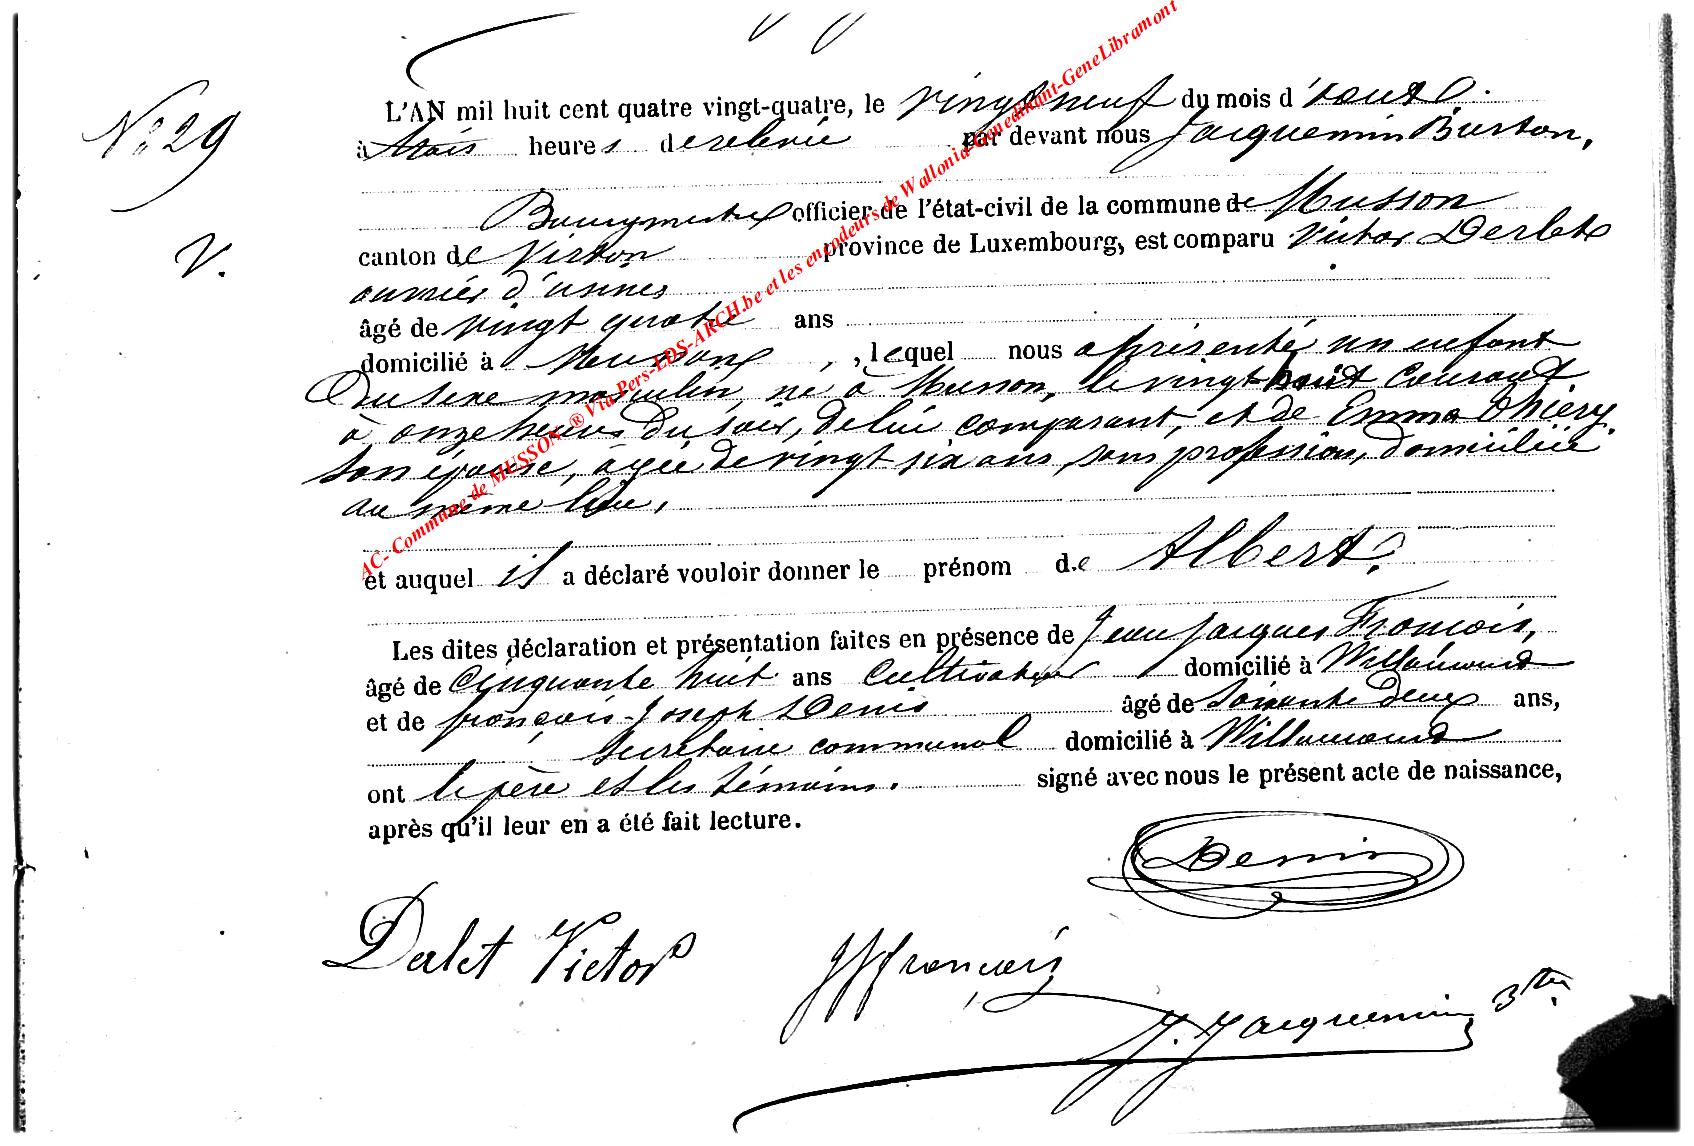 N° 29
V.
L'AN mil huit cent quatre vingt-quatre, le vingt neuf du mois d'août.
à trois heures de relevée par devant nous Jacquemin Burton,
Bourgmestre officier de l'état-civil de la commune de Musson
canton de Virton province de Luxembourg, est comparu Victor Derlet
ouvrier d'usines
âgé de vingt quatre ans
domicilié à Musson, lequel nous a présenté un enfant
du sexe masculin, né à Musson, le vingt huit courant
à onze heures du soir, de lui comparant, et de Emma Thiery
son épouse, âgée de vingt six ans, sans profession, domiciliée
au même lieu,
et auquel il a déclaré vouloir donner le prénom de Albert.
Les dites déclaration et présentation faites en présence de Jean Jacques François,
âgé de cinquante huit ans cultivateur domicilié à Willancourt
et de françois-Joseph Denis âgé de soixante deux ans,
secrétaire communal domicilié à Willancourt
ont le père et les témoins. signé avec nous le présent acte de naissance,
après qu'il leur en a été fait lecture.
Denis
Derlet Victor
JJ françois
J. Jacquemin
AC- Commune de MUSSON ® Via Pers-LDS-ARCH.be et les encodeurs de Wallonia-Genedinant-GeneLibramont